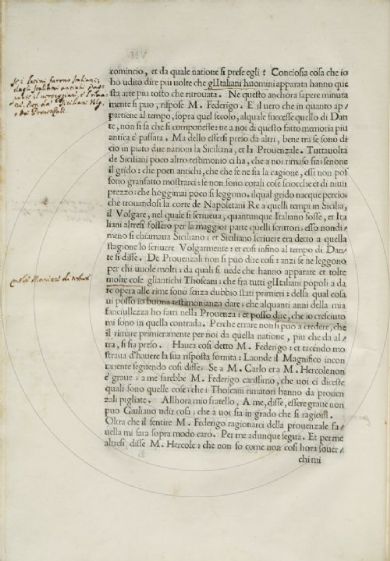 cominciò, et da quale natione si prese egli? Conciosia cosa che io
ho udito dire piu volte che glItaliani huomini apparata hanno que
sta arte piu tosto che ritrovata. Ne questo anchora sapere minuta
mente si puo, rispose M. Federigo. E il vero che in quanto ap/
partiene al tempo, sopra quel secolo, alquale successe quello di Dan
te, non si sa che si componesse: ne a noi di questo fatto memoria piu
antica è passata. Ma dello essersi preso da altri, bene tra se sono di
cio in piato due nationi la Siciliana, et la Provenzale. Tuttavolta
de Siciliani poco altro testimonio ci ha, che a noi rimaso sia; senone
il grido: che poeti antichi, che che se ne sia la cagione, essi non pos
sono granfatto mostrarci: se non sono cotali cose sciocche et di niun
prezzo; che hoggimai poco si leggono. ilqual grido nacque percio;
che trovandosi la corte de Napoletani Re a quelli tempi in Sicilia,
il Volgare, nel quale si scriveva, quantunque Italiano fosse, et Ita
liani altresi fossero per la maggior parte quelli scrittori; esso nondi/
meno si chiamava Siciliano; et Siciliano scrivere era detto a quella
stagione lo scrivere Volgarmente: et cosi infino al tempo di Dan/
te si disse. De Provenzali non si puo dire cosi: anzi se ne leggono
per chi vuole molti; da quali si vede che hanno apparate et tolte
molte cose gliantichi Thoscani; che fra tutti glItaliani popoli a da
re opera alle rime sono senza dubbio stati primieri: della qual cosa
vi posso io buona testimonianza dare; che alquanti anni della mia
fanciullezza ho fatti nella Provenza; et posso dire, che io cresciuto
mi sono in quella contrada. Perche errare non si puo a credere, che
il rimare primieramente per noi da quella natione, piu che da al/
tra, si sia preso. Havea cosi detto M. Federigo: et tacendo mo
strava d'havere la sua risposta fornita: Laonde il Magnifico incon
tanente seguendo cosi disse. Se a M. Carlo et a M. Hercole non
è grave; a me sarebbe M. Federigo carissimo, che voi ci diceste
quali sono quelle cose; che i Thoscani rimatori hanno da proven
zali pigliate. Allhora mio fratello, A me, disse, essere grave non
puo Giuliano udir cosa; che a voi sia in grado che si ragioni.
Oltra che il sentire M. Federigo ragionarci della provenzale fa/
vella mi sara sopra modo caro. Per me adunque segua. Et per me
altresi, disse M. Hercole: che non so come non cosi hora sover/
chi mi